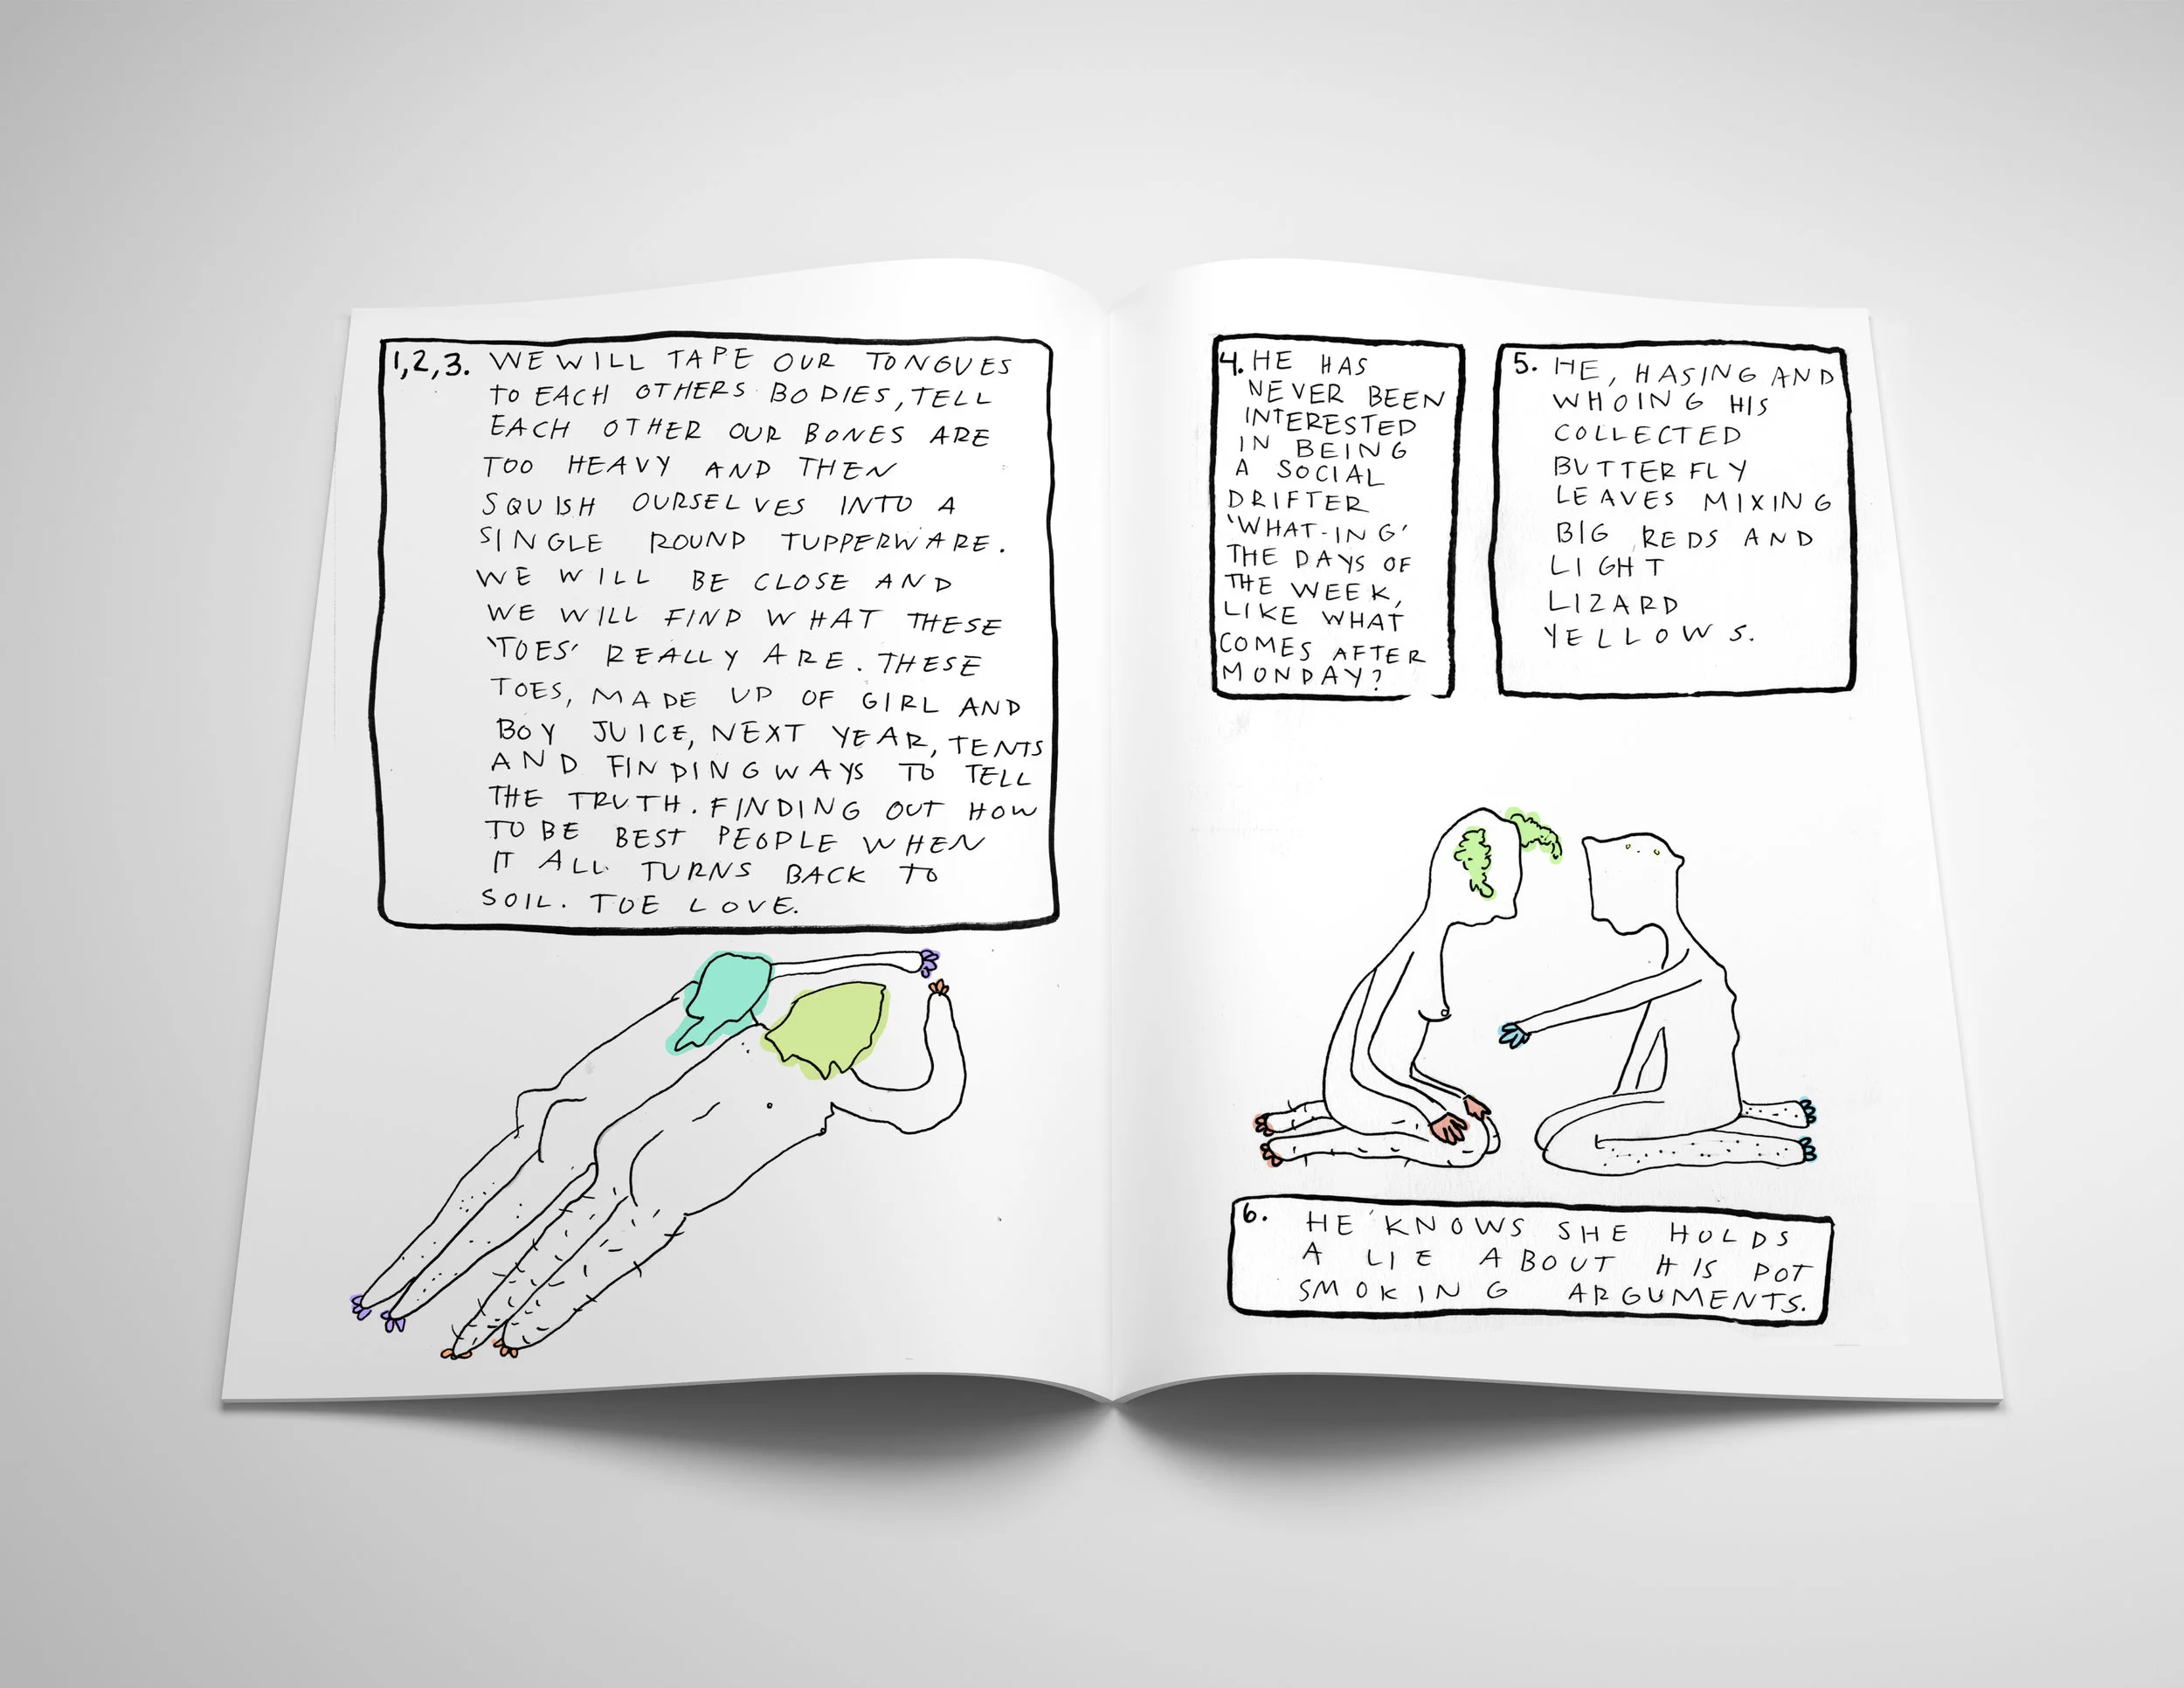 1,2,3. WE WILL TAPE OUR TONGUES
TO EACH OTHERS BODIES, TELL
EACH OTHER OUR BONES ARE
TOO HEAVY AND THEN
SQUISH OURSELVES INTO A
SINGLE ROUND TUPPERWARE.
WE WILL BE CLOSE AND
WE WILL FIND WHAT THESE
'TOES' REALLY ARE. THESE
TOES, MADE UP OF GIRL AND
BOY JUICE, NEXT YEAR, TENTS
AND FINDING WAYS TO TELL
THE TRUTH. FINDING OUT HOW
TO BE BEST PEOPLE WHEN
IT ALL TURNS BACK TO
SOIL. TOE LOVE.
4. HE HAS
NEVER BEEN
INTERESTED
IN BEING
A SOCIAL
DRIFTER
'WHAT-ING'
THE DAYS OF
THE WEEK,
LIKE WHAT
COMES AFTER
MONDAY?
5. HE, HASING AND
WHOING HIS
COLLECTED
BUTTERFLY
LEAVES MIXING
BIG REDS AND
LIGHT
LIZARD
YELLOWS.
6. HE KNOWS SHE HOLDS
A LIE ABOUT HIS POT
SMOKING ARGUMENTS.